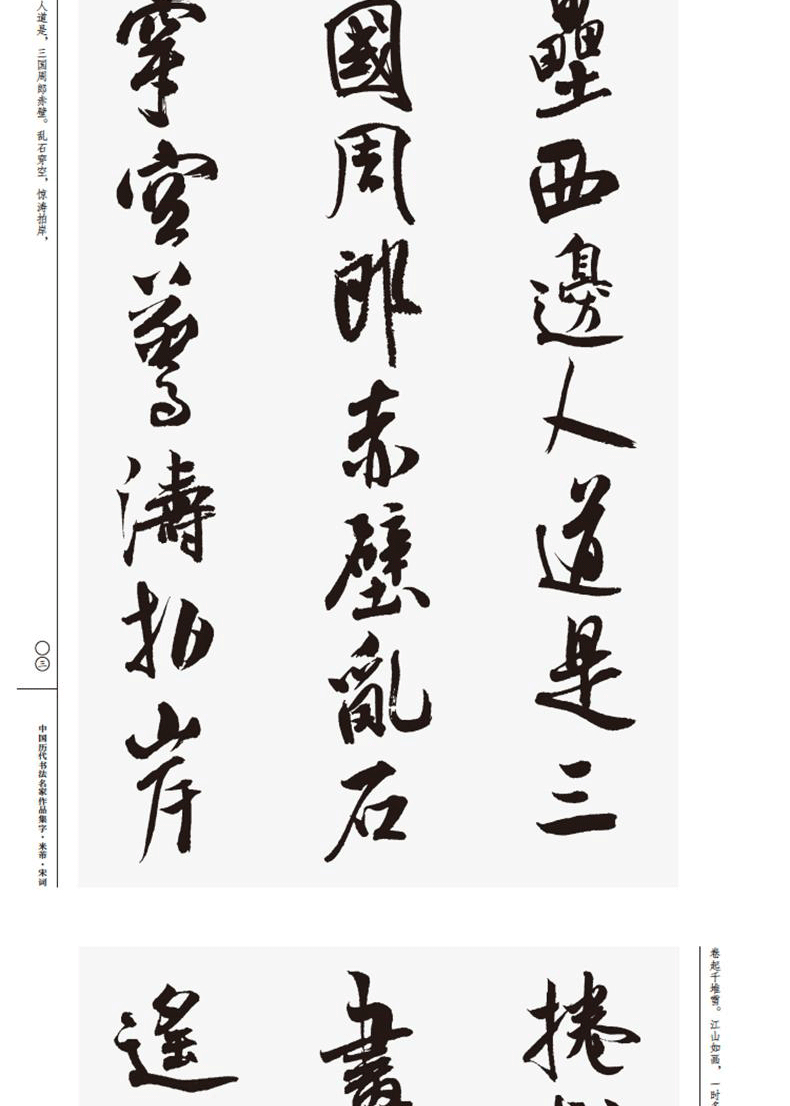 壘西邊人道是三
國周郎赤壁亂石
穿空驚濤拍岸
人道是，三国周郎赤壁。乱石穿空，惊涛拍岸，
〇三
中国历代书法名家作品集字·米芾·宋词
捲
畫
遙
卷起千堆雪。江山如画，一时多